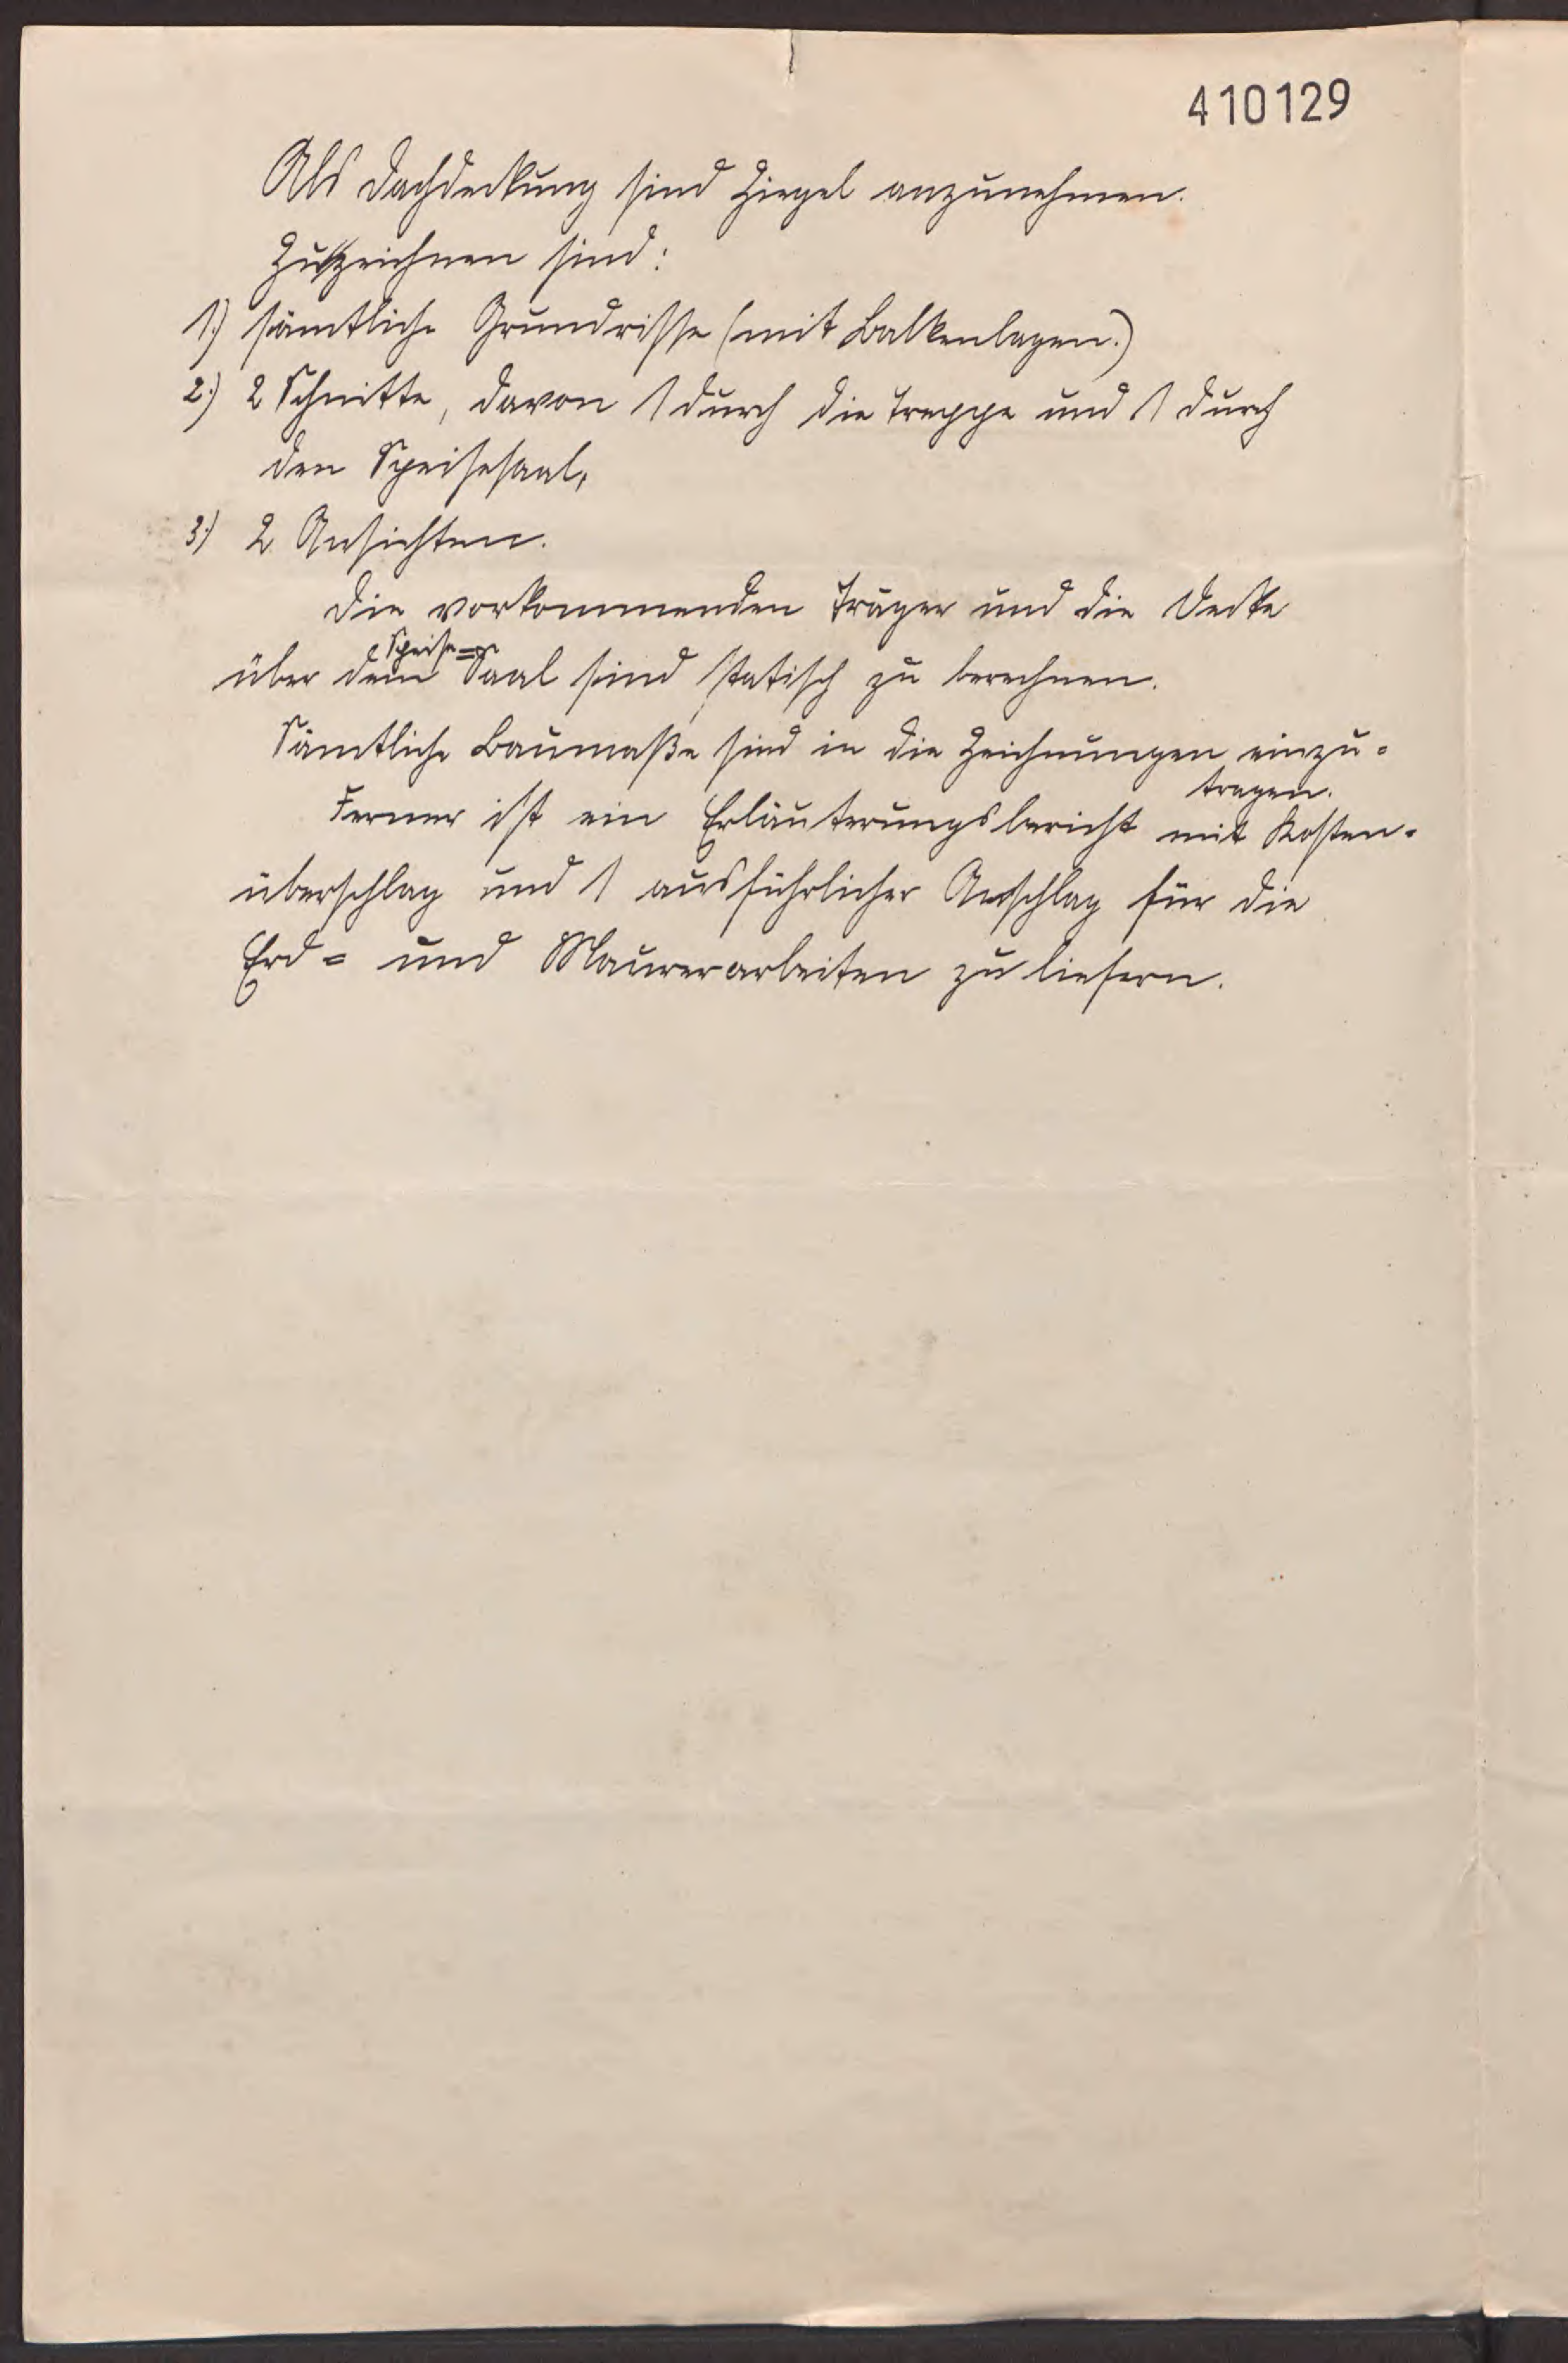 410129
Als Dachdeckung sind Ziegel anzunehmen.
Zu zeichnen sind:
1.) sämtliche Grundrisse (mit Balkenlagen.)
2.) 2 Schnitte, davon 1 durch die Treppe und 1 durch
den Speisesaal,
3.) 2 Ansichten.
Die vorkommenden Träger und die Decke
Speise=
über dem Saal sind statisch zu berechnen.
Sämtliche Baumaße sind in die Zeichnungen einzu-
tragen.
Ferner ist ein Erläuterungsbericht mit Kosten-
überschlag und 1 ausführlicher Anschlag für die
Erd= und Maurerarbeiten zu liefern.